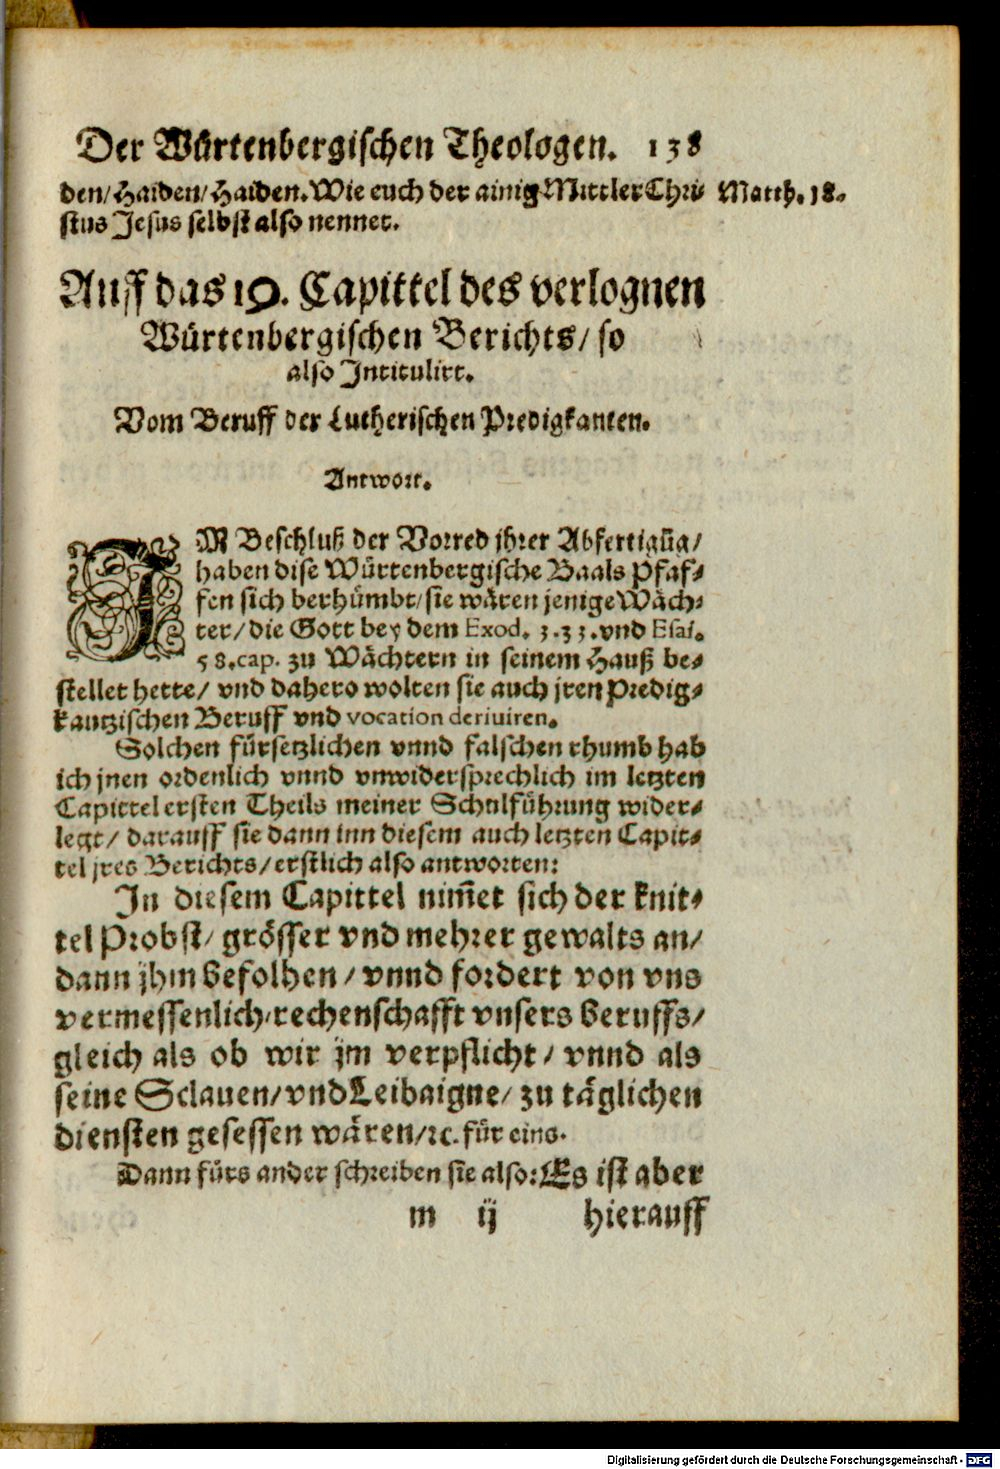 Der Würtenbergischen Theologen. 138
den/Haiden/Haiden. Wie euch der ainig Mittler Chri- Matth. 18.
stus Jesus selbst also nennet.
Auff das 19. Capittel des verlognen
Würtenbergischen Berichts/ so
also Intitulirt.
Vom Beruff der Lutherischen Predigkanten.
Antwort.
IM Beschluß der Vorred jhrer Abfertigũg/
haben dise Würtenbergische Baals Pfaf-
fen sich berhümbt/ sie wären jenige Wäch-
ter/ die Gott bey dem Exod. 3.33. vnd Esai.
58. cap. zu Wächtern in seinem Hauß be-
stellet hette/ vnd dahero wolten sie auch jren Predig-
kautzischen Beruff vnd vocation deriuiren.
Solchen fürsetzlichen vnnd falschen rhumb hab
ich jnen ordenlich vnnd vnwidersprechlich im letzten
Capittel ersten Theils meiner Schulführung wider-
legt/ darauff sie dann inn diesem auch letzten Capit-
tel jres Berichts/ erstlich also antworten:
In diesem Capittel nim̃et sich der knit-
tel Probst/ grösser vnd mehrer gewalts an/
dann jhm befolhen/ vnnd fordert von vns
vermessenlich/ rechenschafft vnsers beruffs/
gleich als ob wir jm verpflicht/ vnnd als
seine Sclauen/ vnd Leibaigne/ zu täglichen
diensten gesessen wären/ ꝛc. für eins.
Dann fürs ander schreiben sie also: Es ist aber
m ij hierauff
Digitalisierung gefördert durch die Deutsche Forschungsgemeinschaft - DFG